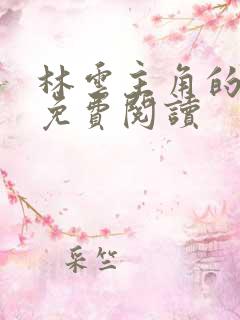 林雲主角的
免費閱讀
采竺